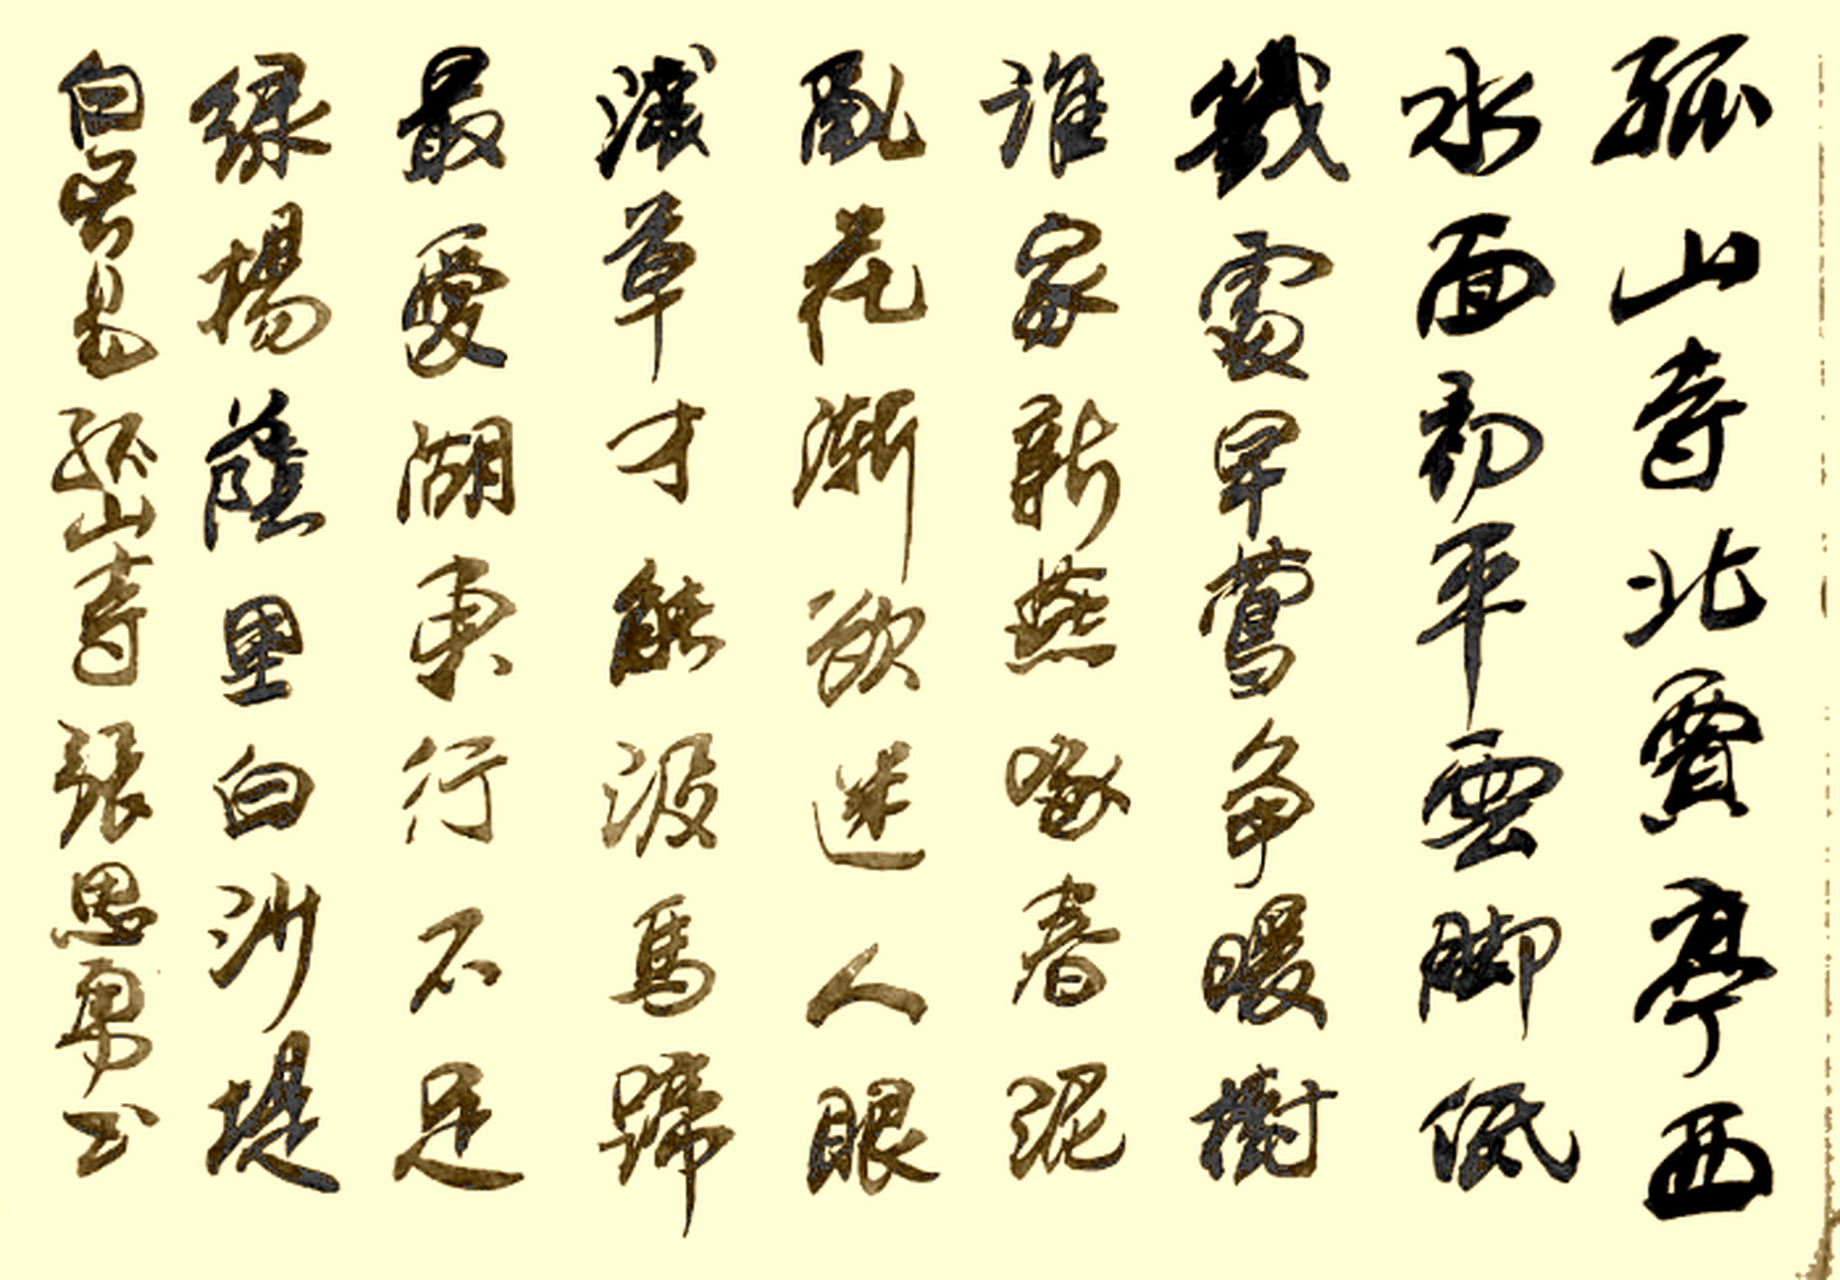 孤山寺北賈亭西
水面初平雲脚低
幾處早鶯争暖樹
誰家新燕啄春泥
亂花漸欲迷人眼
淺草才能没馬蹄
最愛湖東行不足
緑楊蔭里白沙堤
白居易孤山寺張思勇书